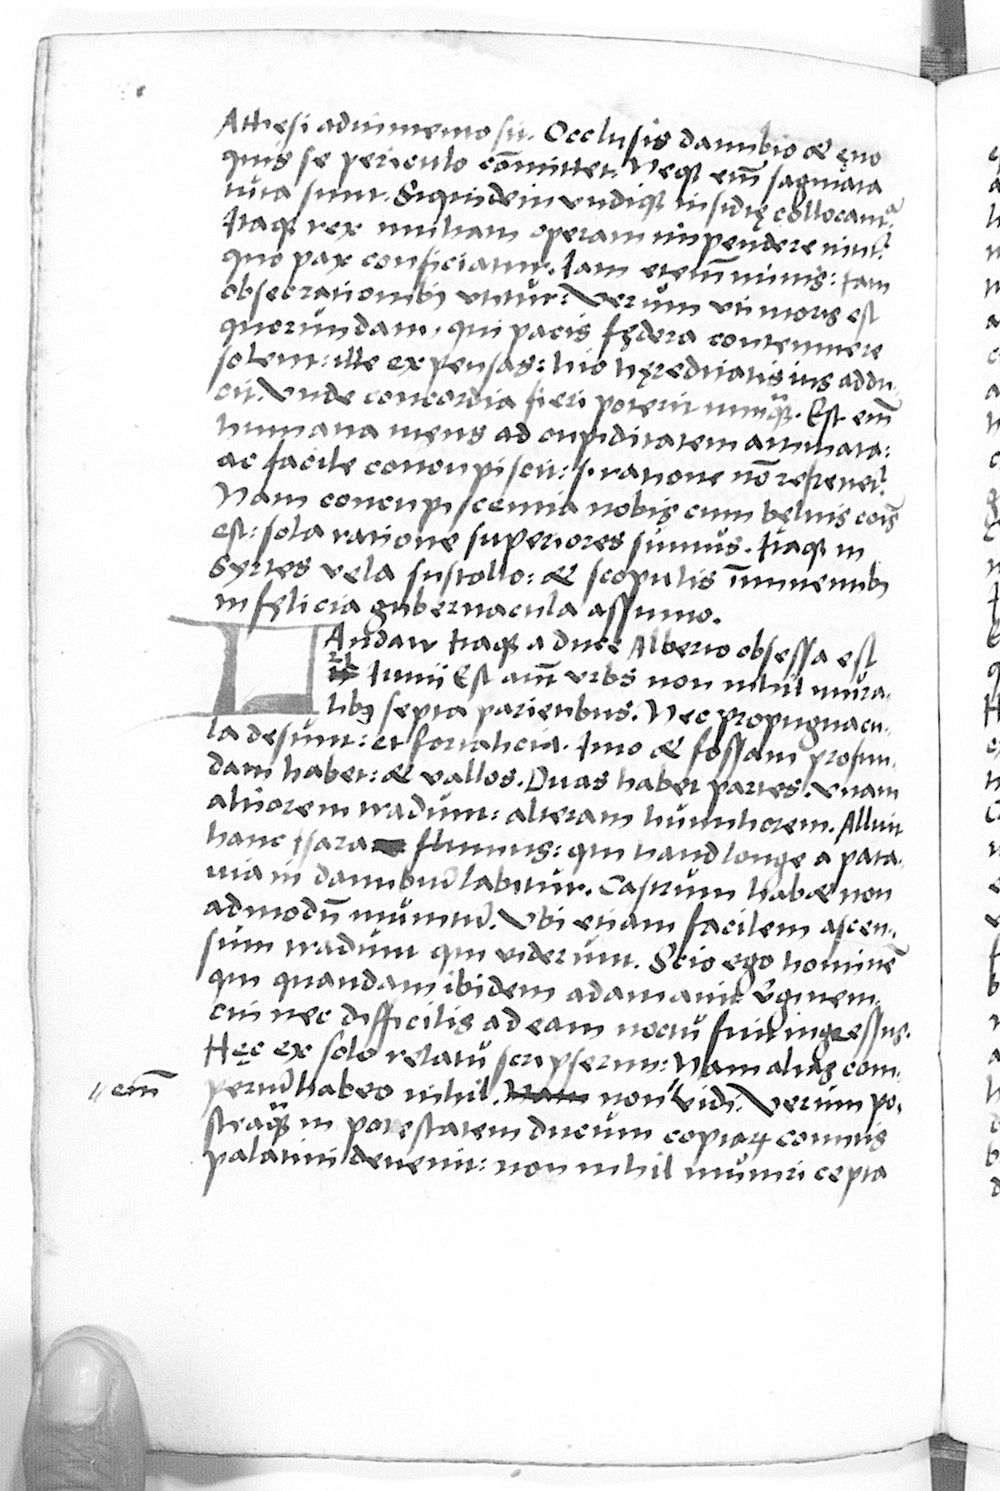 Athesi adminiemo sit. Occlusis danubio & ęno
quis se periculo cōmittet. Neqȝ em̄ sagmata
tuta sunt. Siquidem undiqȝ insidię collocant̃.
Itaqȝ rex multam operam impendere nitit̃
quo pax conficiatur. Iam etem̄ minis: tam
obsecrationibȝ utitur: Verum uti moris est
quorundam, qui pacis fędera contemnere
solent: ille expensas: hic hęreditatis ius addu-
cit. Unde concordia fieri poterit nunq̃ȝ. Est em̄
humana mens ad cupiditatem armata:
ac facile concupiscit: s. ratione nō refrenet̃.
Nam concupiscentia nobis cum beluis cōis
est: sola ratione superiores sumus. Itaqȝ in
Syrtes vela sustollo: & scopulis īminentibȝ
infęlicia gubernacula assumo.
LAndaw itaqȝ a duce Alberto obsessa est
21 Iunij Est aut̄ urbs non nihil mura-
libȝ septa parietibus. Nec propugnacu-
la desunt: et fortalicia. Imo & fossam profun-
dam habet: & vallos. Duas habet partes. Unam
altiorem tradunt: alteram humiliorem. Alluit
hanc Isara flumus: qui haud longe a pata-
uia in danubiũ labitur. Castrum habæ non
admodũ munitũ. Ubi etiam facilem ascen-
sum tradunt qui viderunt. Scio ego hominē
qui quandam ibidem adamauit ṽginem.
cui nec difficilis ad eam noctu fuit ingressus.
Hęc ex solo relatu scripserim: Nam alias com-
〃 em̄ pertũ habeo nihil. Nam non 〃 vidi. Verum po-
steaq̃ȝ in potestatem ducum copiaꝝ comitis
palatini deuenit: non nihil muniri cepta